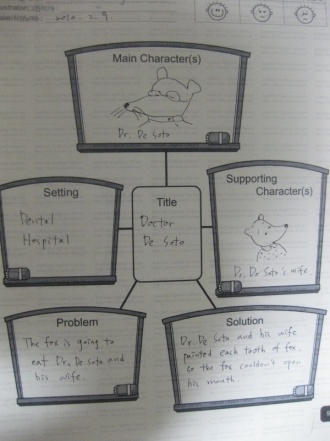 2010. 2. 9.
Main Character(s)
Dr. De Soto
Setting
Dental
Hospital
Title
Doctor
De Soto
Supporting
Character(s)
Dr. De Soto's wife.
Problem
The fox is going to
eat Dr. De Soto and
his wife.
Solution
Dr. De Soto and his wife
painted each tooth of fox.
so the fox couldn't open
his mouth.